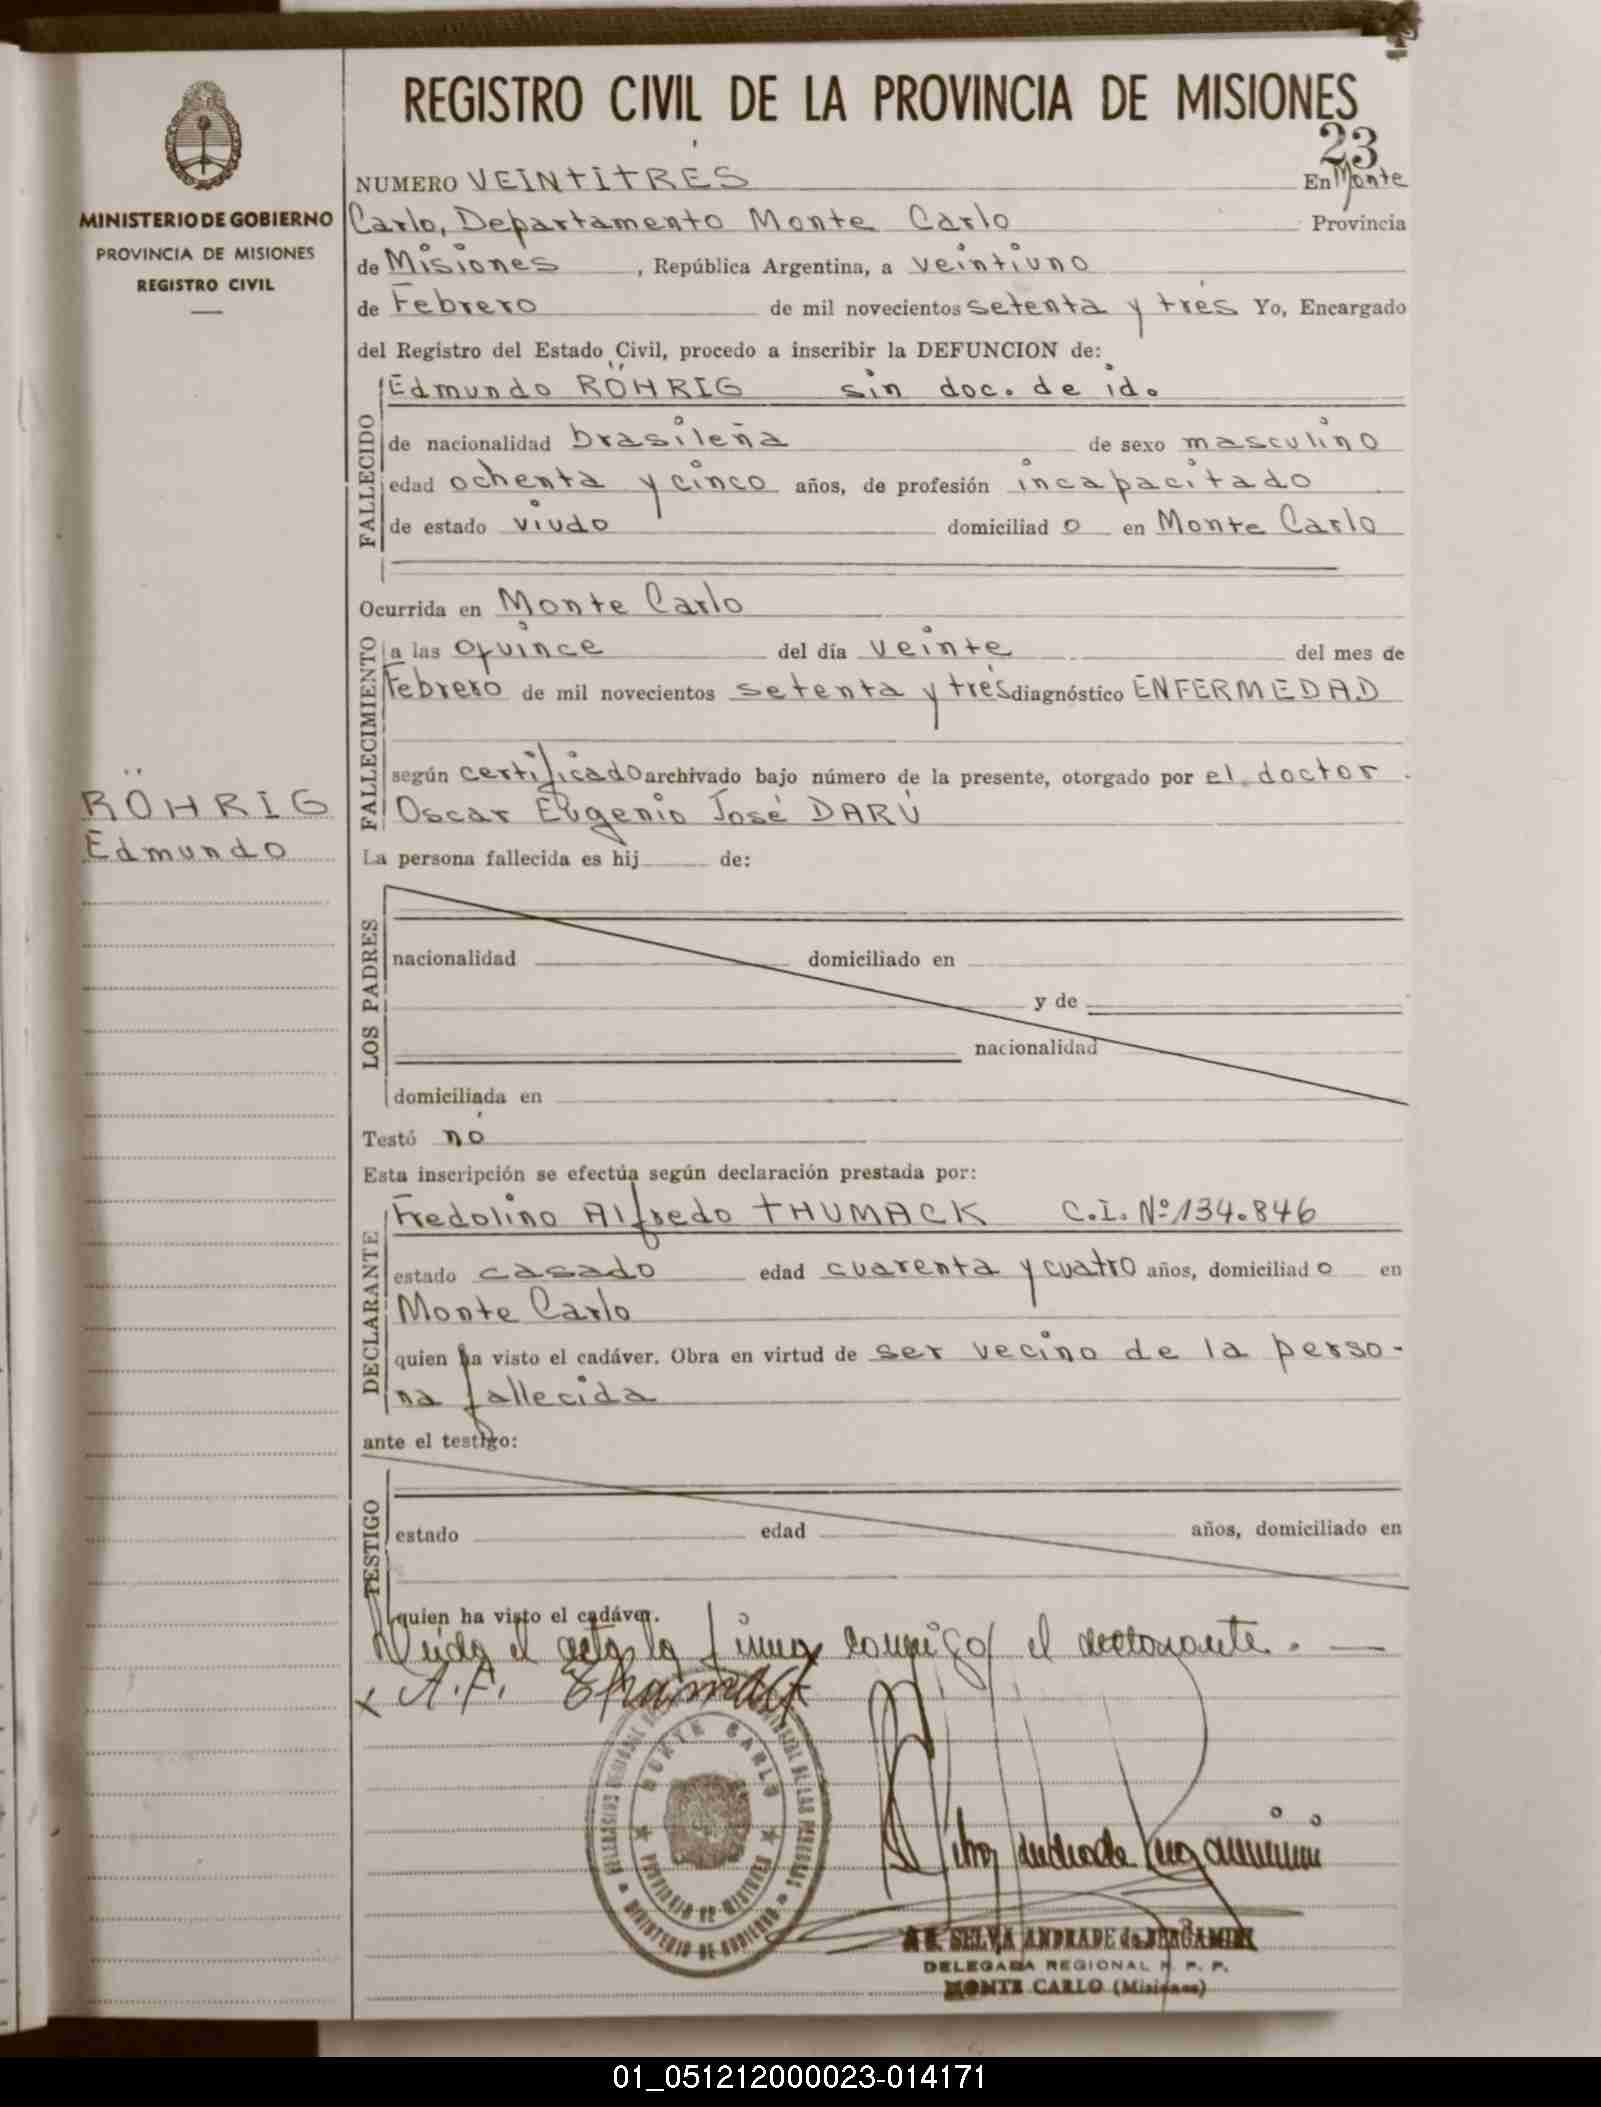 REGISTRO CIVIL DE LA PROVINCIA DE MISIONES
23
MINISTERIO DE GOBIERNO
PROVINCIA DE MISIONES
REGISTRO CIVIL
NUMERO VEINTITRÉS En Monte
Carlo, Departamento Monte Carlo Provincia
de Misiones, República Argentina, a veintiuno
de Febrero de mil novecientos setenta y trés Yo, Encargado
del Registro del Estado Civil, procedo a inscribir la DEFUNCION de:
FALLECIDO
Edmundo RÖHRIG sin doc. de id.
de nacionalidad brasileña de sexo masculino
edad ochenta y cinco años, de profesión incapacitado
de estado viudo domiciliad o en Monte Carlo
Ocurrida en Monte Carlo
FALLECIMIENTO
a las quince del día veinte del mes de
Febrero de mil novecientos setenta y trés diagnóstico ENFERMEDAD
según certificado archivado bajo número de la presente, otorgado por el doctor
Oscar Eugenio José DARÚ
RÖHRIG
Edmundo
La persona fallecida es hij de:
LOS PADRES
nacionalidad domiciliado en
y de
nacionalidad
domiciliada en
Testó nó
Esta inscripción se efectúa según declaración prestada por:
DECLARANTE
Fredolino Alfredo THUMACK C.I. Nº 134.846
estado casado edad cuarenta y cuatro años, domiciliad o en
Monte Carlo
quien ha visto el cadáver. Obra en virtud de ser vecino de la perso-
na fallecida
ante el testigo:
TESTIGO
estado edad años, domiciliado en
quien ha visto el cadáver.
Leida el acta la firma conmigo el declarante.
A.F. Thumack
MONTE CARLO
PROVINCIA DE MISIONES
MINISTERIO DE GOBIERNO
SELVA ANDRADE de BERGAMINI
DELEGADA REGIONAL R. P. P.
MONTE CARLO (Misiones)
01_051212000023-014171